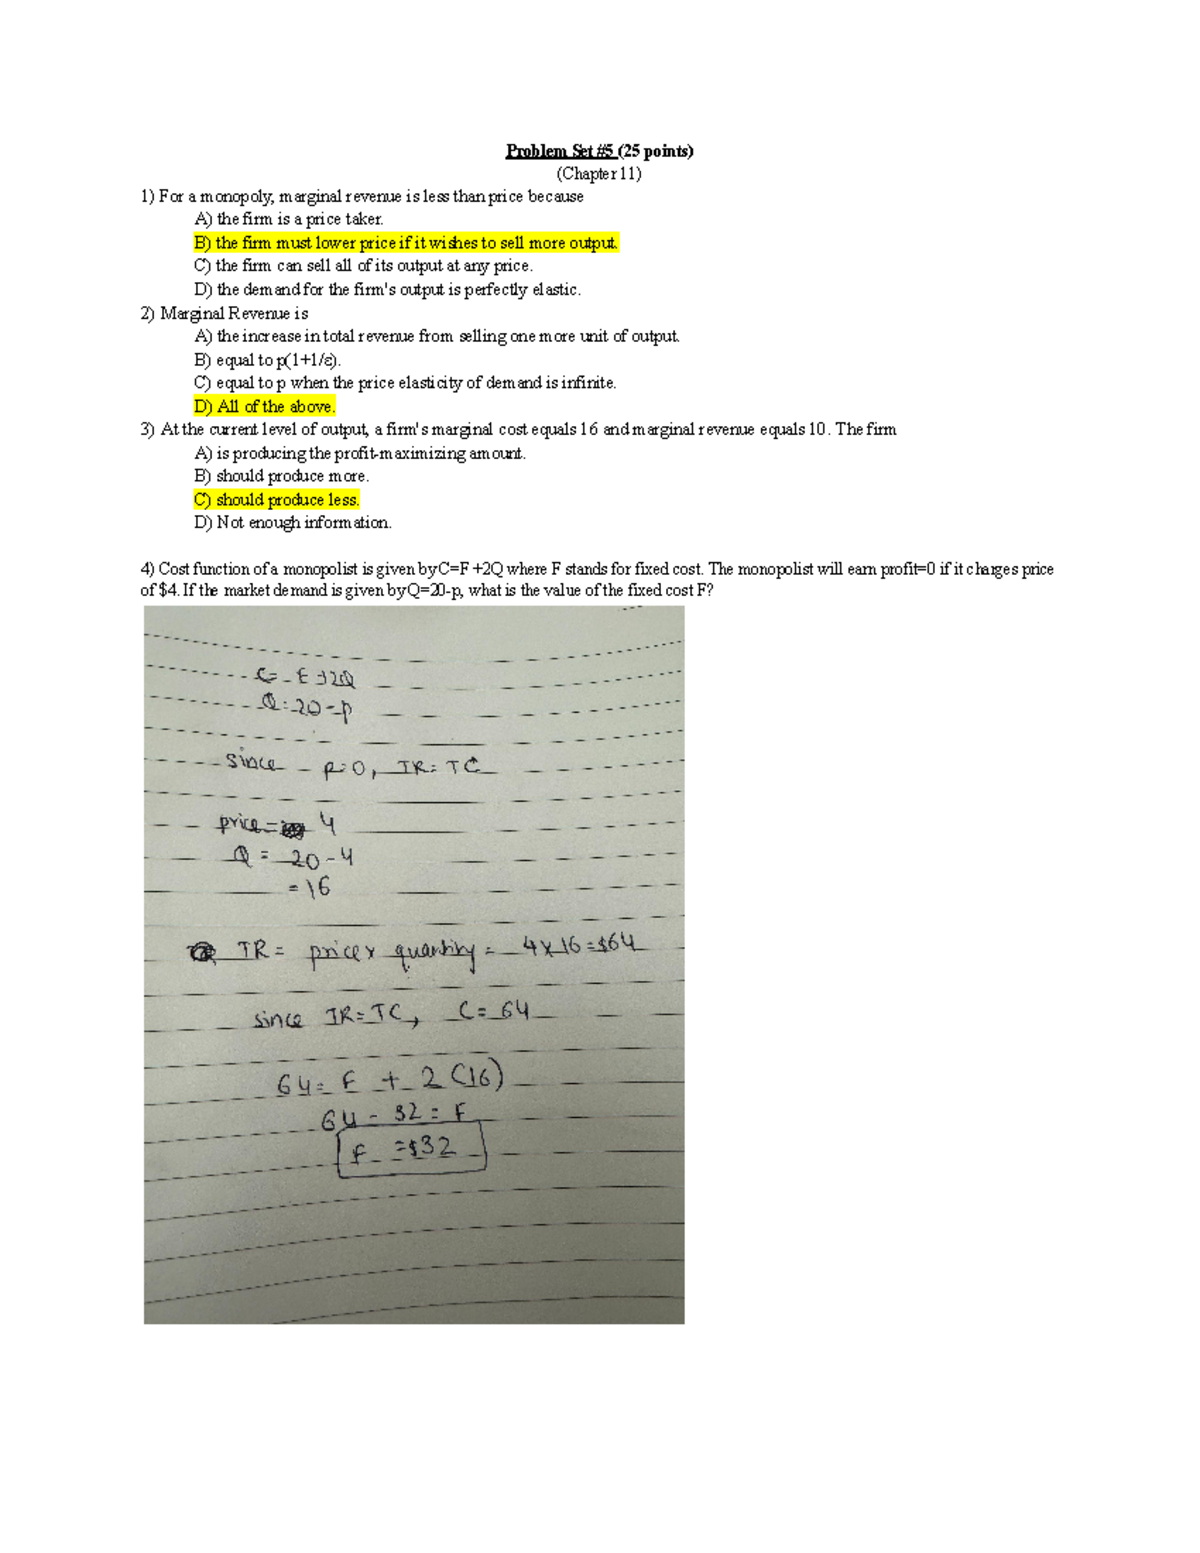 Problem Set #5 (25 points)
(Chapter 11)
1) For a monopoly, marginal revenue is less than price because
A) the firm is a price taker.
B) the firm must lower price if it wishes to sell more output.
C) the firm can sell all of its output at any price.
D) the demand for the firm's output is perfectly elastic.
2) Marginal Revenue is
A) the increase in total revenue from selling one more unit of output.
B) equal to p(1+1/ε).
C) equal to p when the price elasticity of demand is infinite.
D) All of the above.
3) At the current level of output, a firm's marginal cost equals 16 and marginal revenue equals 10. The firm
A) is producing the profit-maximizing amount.
B) should produce more.
C) should produce less.
D) Not enough information.
4) Cost function of a monopolist is given by C=F +2Q where F stands for fixed cost. The monopolist will earn profit=0 if it charges price
of $4. If the market demand is given by Q=20-p, what is the value of the fixed cost F?
C= F +2Q
Q=20-p
since p=0, TR= TC
price= 4
Q = 20-4
=16
TR= price x quantity = 4x16=$64
since TR=TC, C=64
64= F + 2(16)
64 - 32 = F
F =$32